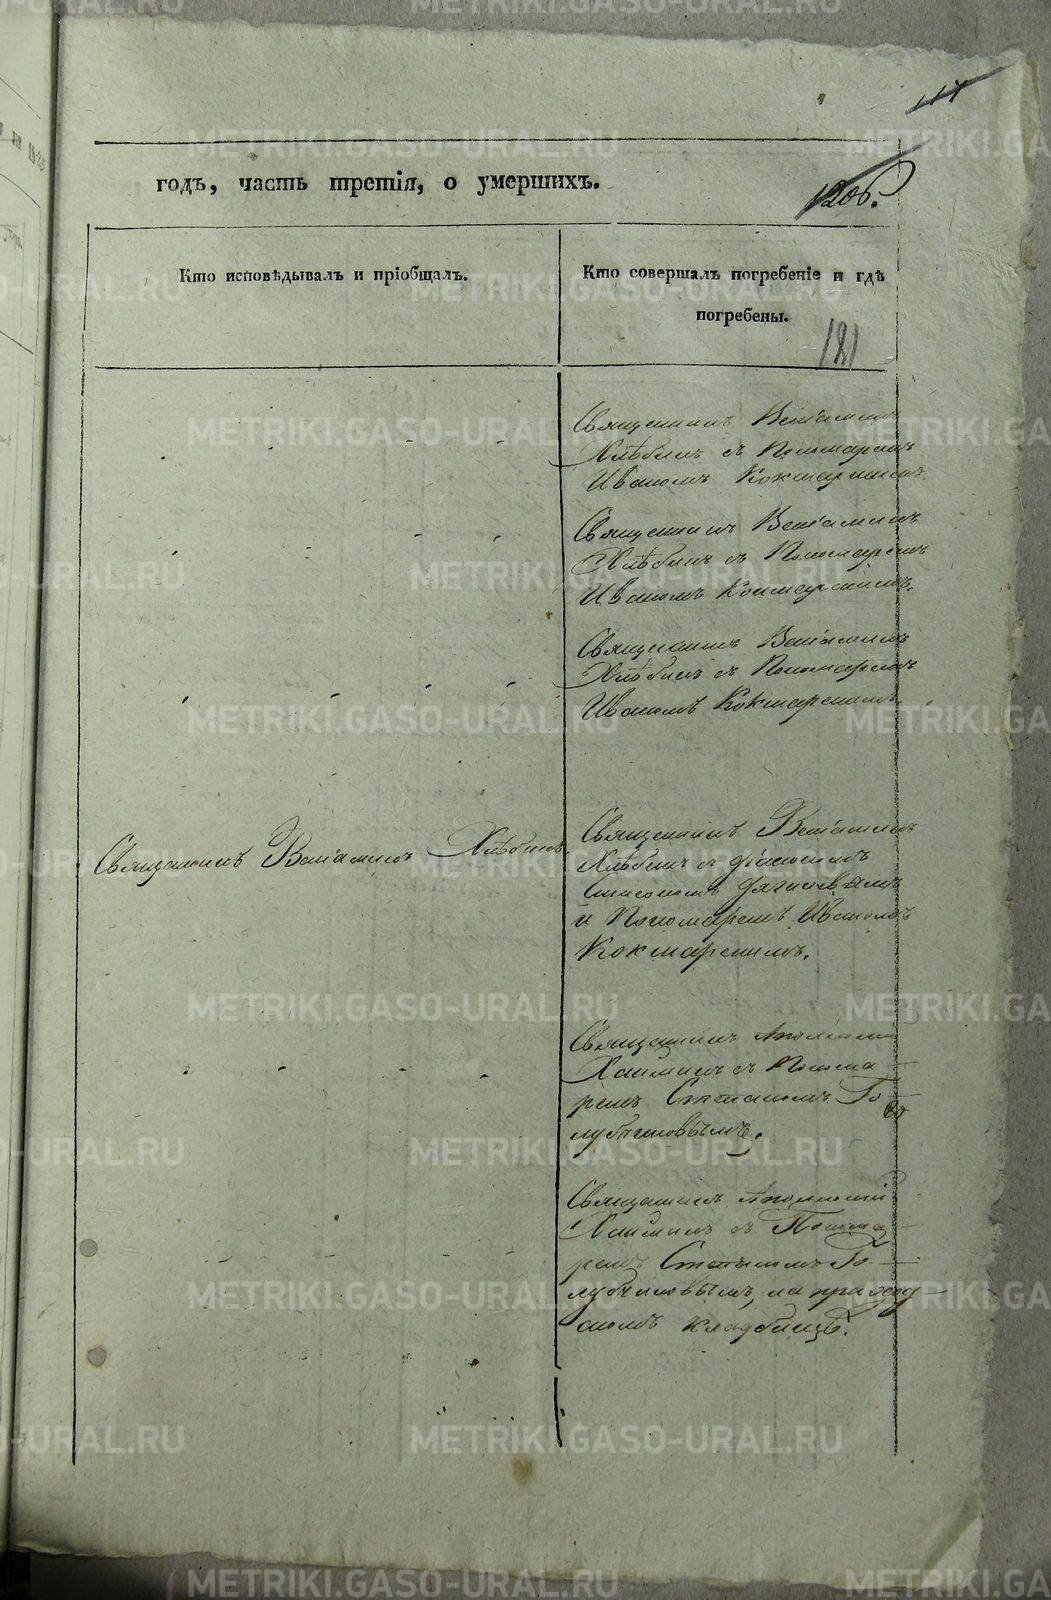 114
годъ, часть третія, о умершихъ.
1206.
Кто исповѣдывалъ и пріобщалъ.
Кто совершалъ погребеніе и гдѣ
погребены.
181
Священникъ Веніаминъ
Хлѣбинъ съ Пономаремъ
Иваномъ Кокшарскимъ
Священникъ Веніаминъ
Хлѣбинъ съ Пономаремъ
Иваномъ Кокшарскимъ.
Священникъ Веніаминъ
Хлѣбинъ съ Пономаремъ
Иваномъ Кокшарскимъ.
Священникъ Веніаминъ Хлѣбинъ.
Священникъ Веніаминъ
Хлѣбинъ съ Діакономъ
и Пономаремъ Иваномъ
Кокшарскимъ.
Священникъ Аполлоній
съ Понома
ремъ Степаномъ Го
лубчиковымъ.
Священникъ Аполлоній
съ Понома
ремъ Степаномъ Го
лубчиковымъ, на приход
скомъ кладбищѣ.
METRIKI.GASO-URAL.RU